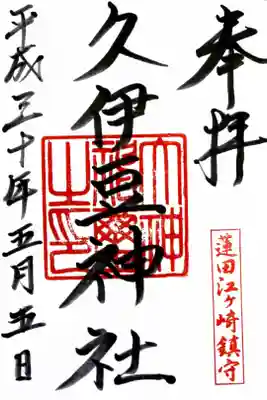 奉拝
蓮田江ヶ崎鎮守
久伊豆神社
平成三十年五月五日